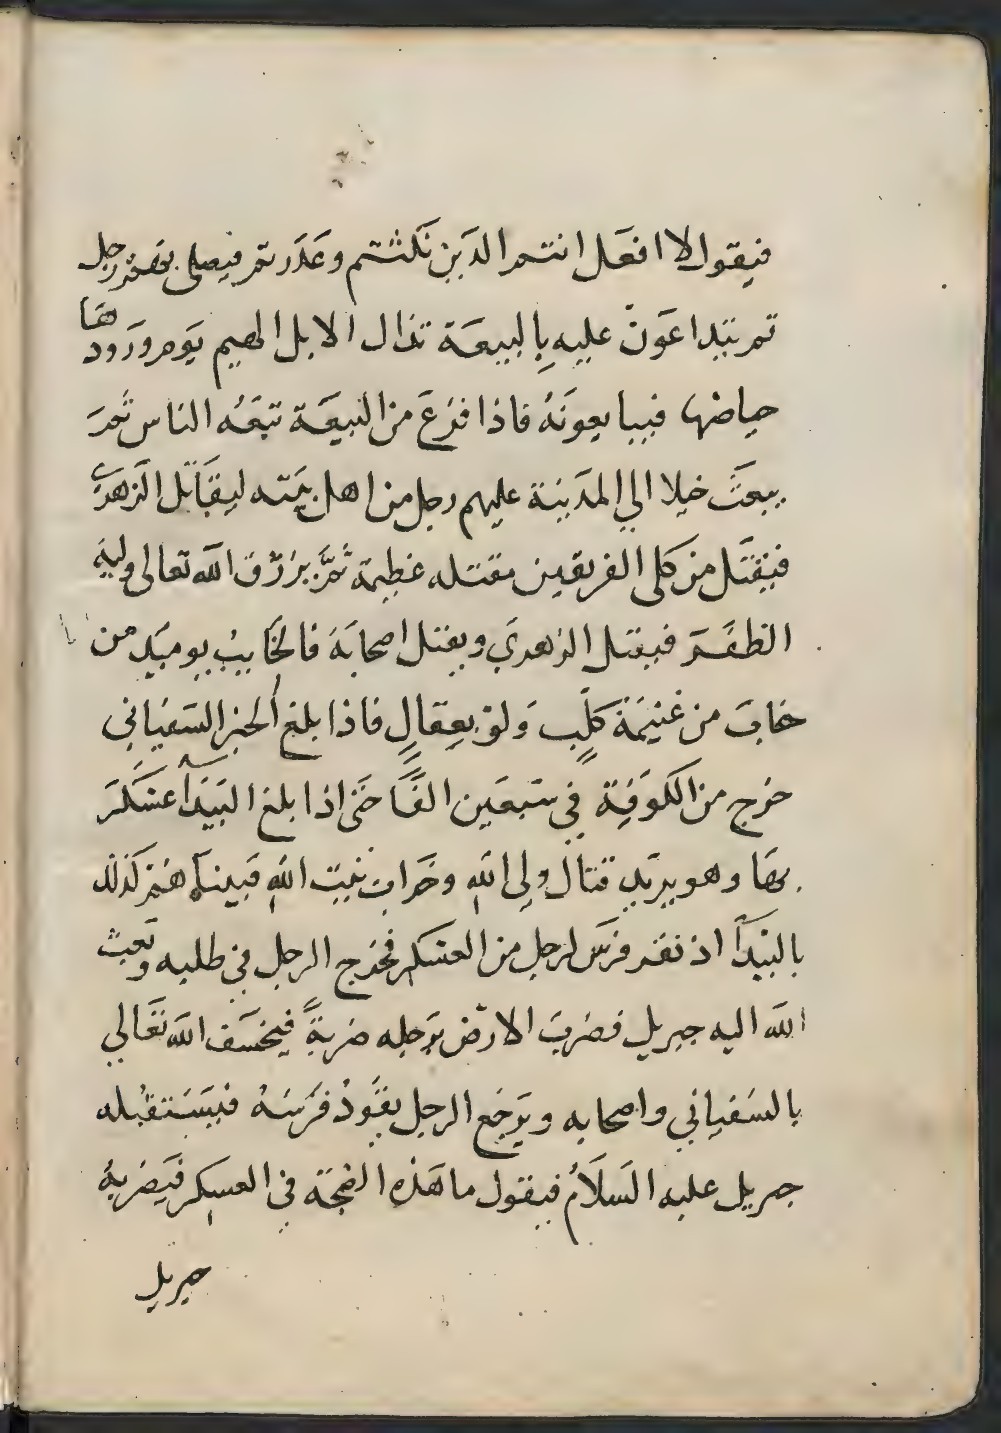 فيقول لا افعل انتم الذين نكثتم وغدرتم فيصلى بهم رجل
ثم يتداعون عليه بالبيعة تذال الابل الهيم يوم ورودها
حياضها فيبايعونه فاذا فرغ من البيعة تبعه الناس ثم
يبعث خيلا الي المدينة عليهم رجل من اهل بيته ليقاتل الزهري
فيقتل من كلى الفريقين مقتله عظيمة ثم يرزق الله تعالى وليه
الظفر فيقتل الزهري ويقتل اصحابه فالخايب يوميد من
خاب من غنيمة كلب ولو بعقال فاذا بلغ الخبر السفياني
خرج من الكوفة في سبعين الفا حتى اذا بلغ البيدا عسكر
بها وهو يريد قتال ولى الله وخراب بيت الله فبينما هم كذلك
بالبيدا اذ نفر فرس لرجل من العسكر فخرج الرجل في طلبه وبعث
الله اليه جبريل فضرب الارض برجله ضربة فيخسف الله تعالي
بالسفياني واصحابه ويرجع الرجل يقود فرسه فيستقبله
جبريل عليه السلام فيقول ما هذه الضجة في العسكر فيضربه
جبريل